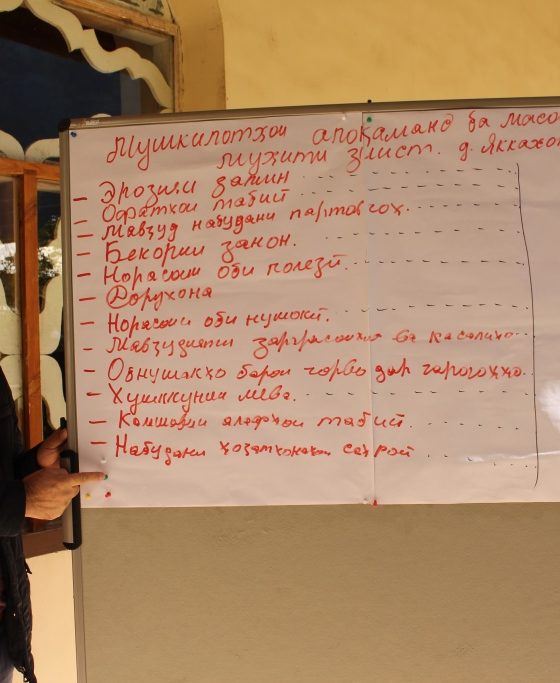 Мушкилотҳои алоқаманд ба масо
муҳити зист. д. Яккахо
- Эрозияи замин
- Офатҳои табиӣ
- Мавҷуд набудани партовгоҳ.
- Бекории занон.
- Норасоии оби полезӣ.
- Дорухона
- Норасоии оби нушокӣ.
- Мавҷудияти зараррасонҳо ва касалиҳо.
- Обнушакҳо барои чорво дар чарогоҳҳо.
- Хушккунии мева.
- Камшавии алафҳои табиӣ.
- Набудани ҳоҷатхонаҳои саҳроӣ